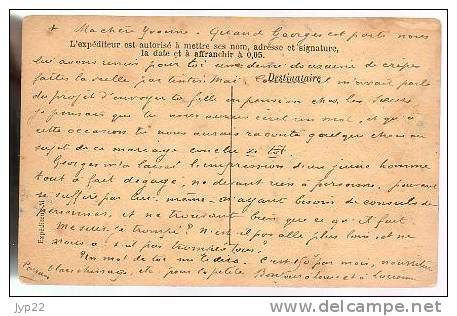 + Ma chère Yvonne - Quand Georges est parti nous
L'expéditeur est autorisé à mettre ses nom, adresse et signature,
la date et à affranchir à 0,05.
lui avons remis pour toi une demi douzaine de crêpes
faites la veille par
Destinataire
m'avait parlé
du projet d'envoyer ta fille en pension chez les Sœurs
je pensais que tu nous aurais écrit un mot, et qu'à
cette occasion tu nous aurais raconté quelque chose au
sujet de ce mariage conclu si tôt.
Georges m'a laissé l'impression d'un jeune homme
tout à fait dégagé, ne devant rien à personne, pouvant
se suffire par lui-même, n'ayant besoin de conseils de
personne, et ne trouvant bien que ce qu'il fait
Me suis-je trompé? N'est-il pas allé plus loin et ne
nous a-t-il pas trompés tous.
Un mot de toi me le dira. C'est par mois, nourriture
blanchissage, etc pour la petite Bonjours à tous et à Lucien
Expéditeur M
jyp22
delcampe.net